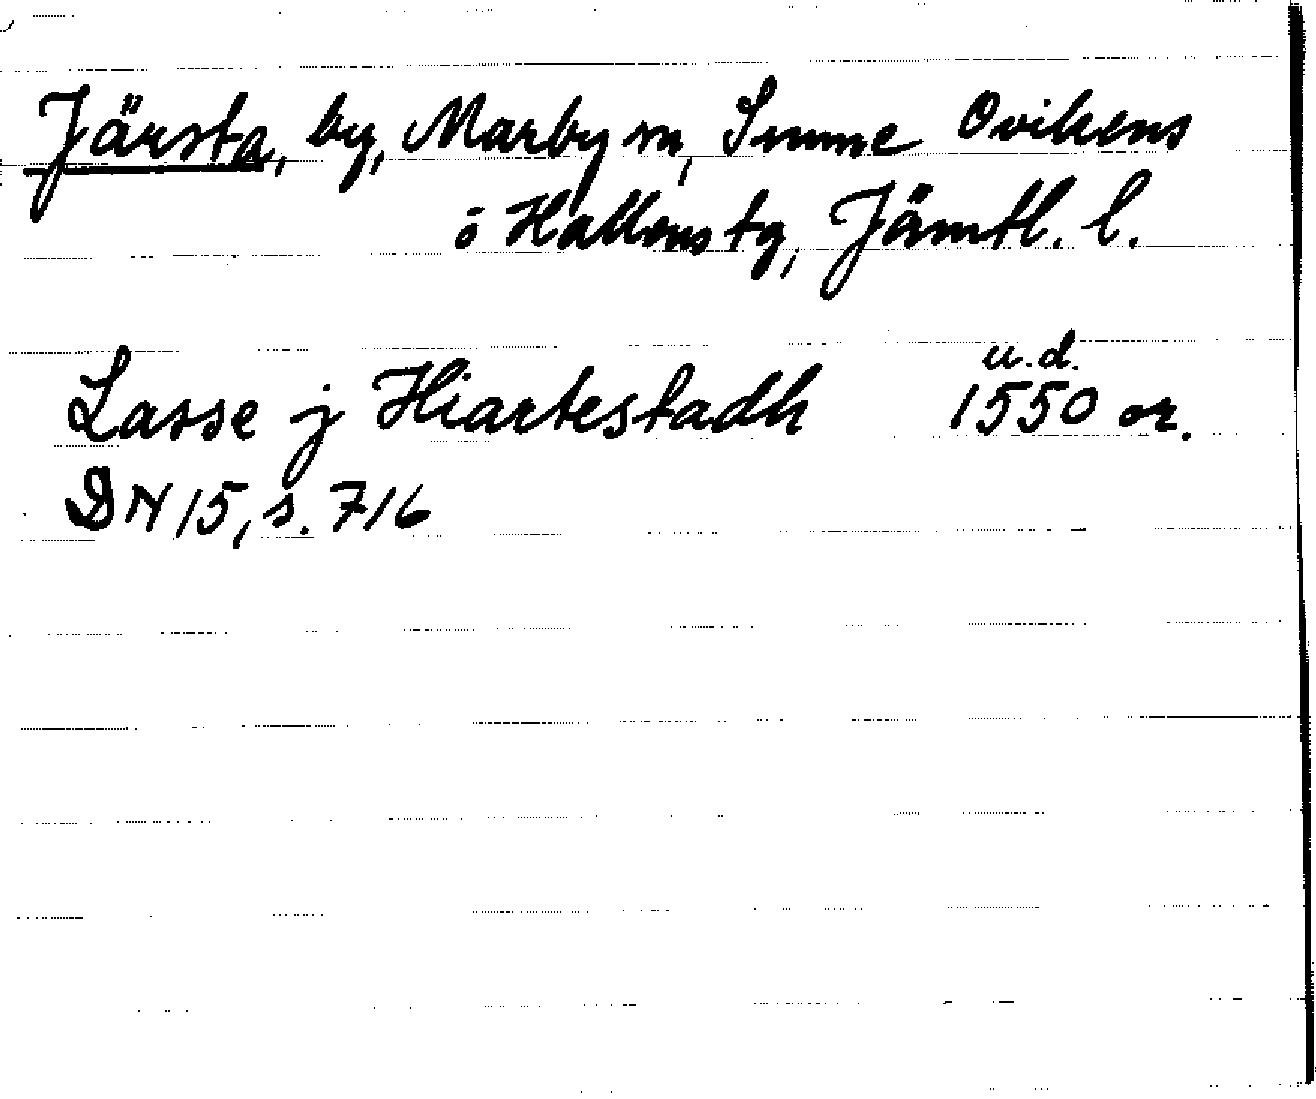 Järsta, by, Marby sn, Sunne Ovikens
o Hallens tg, Jämtl. l.
u.d.
Lasse j Hiartestadh 1550 or.
DN 15, s. 716